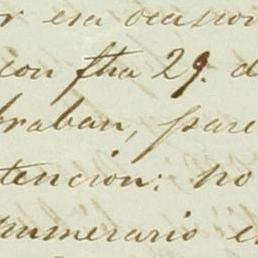 r esa ocasion
con fha 29. d
braban, pare
tencion: no
numerario e